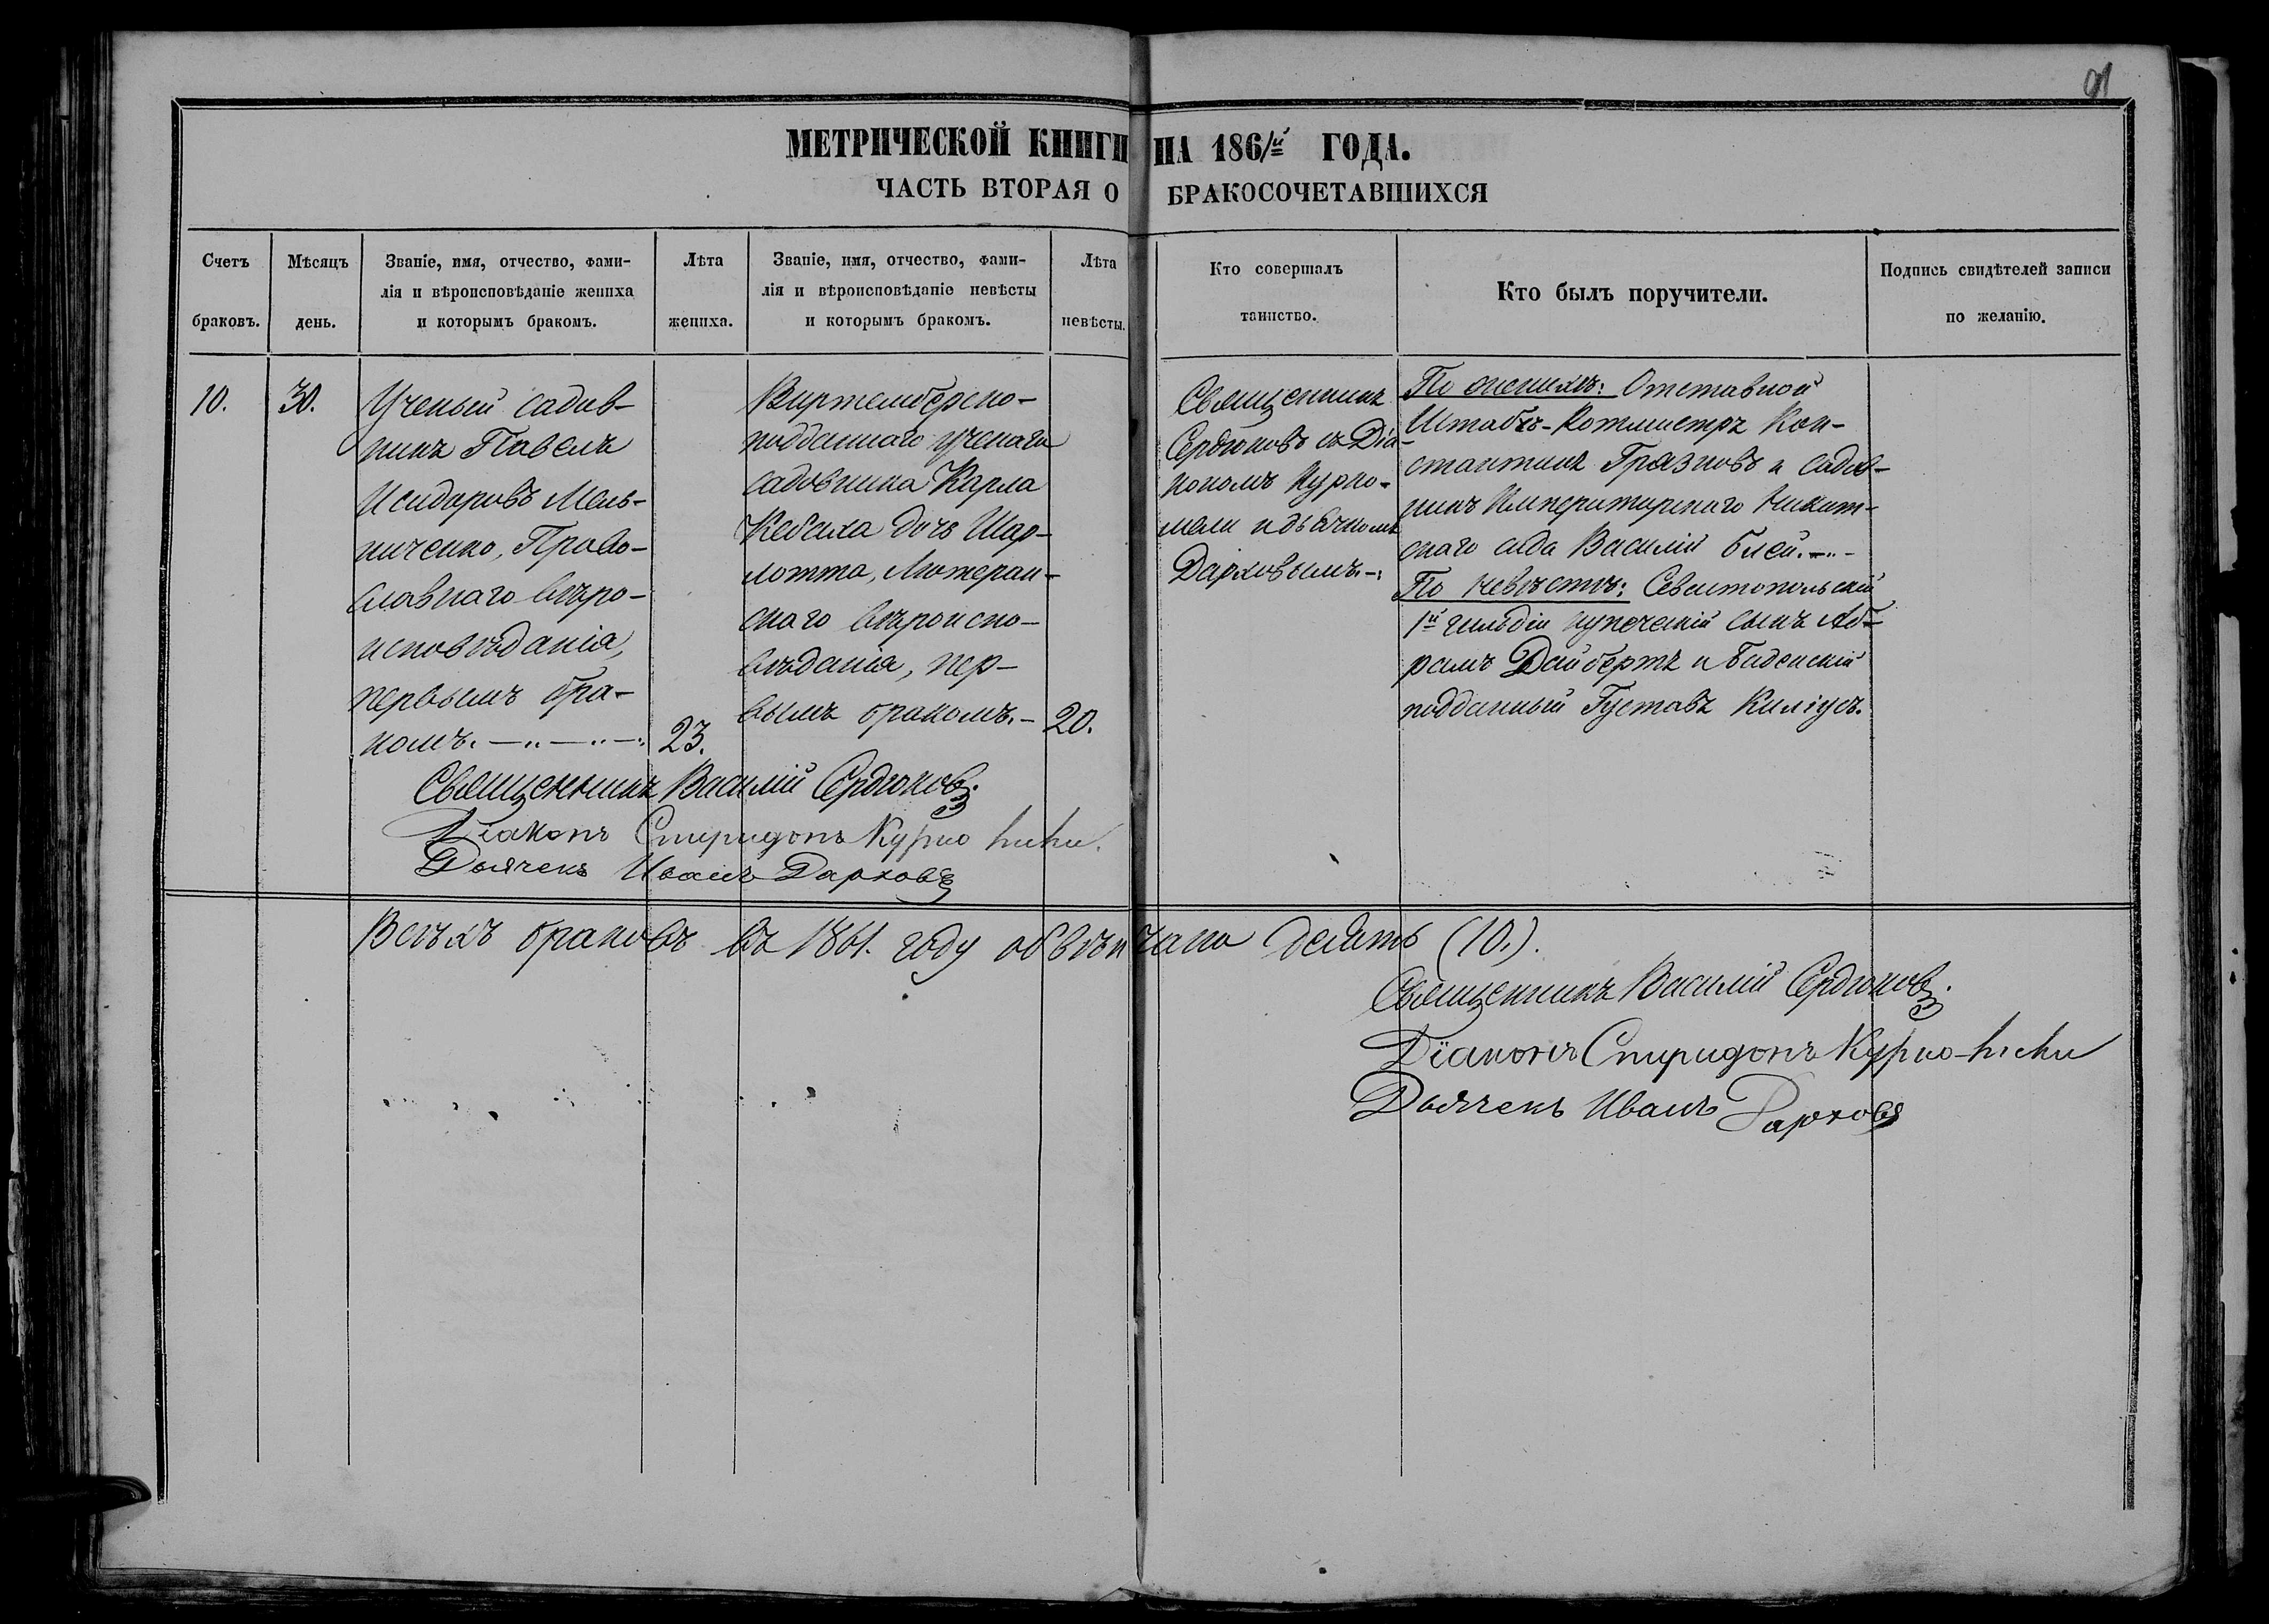 91
МЕТРИЧЕСКОЙ КНИГИ НА 1861й ГОДА.
ЧАСТЬ ВТОРАЯ О БРАКОСОЧЕТАВШИХСЯ
Счетъ
браковъ.
Мѣсяцъ
день.
Званіе, имя, отчество, фами-
лія и вѣроисповѣданіе жениха
и которымъ бракомъ.
Лѣта
жениха.
Званіе, имя, отчество, фами-
лія и вѣроисповѣданіе невѣсты
и которымъ бракомъ.
Лѣта
невѣсты.
Кто совершалъ
таинство.
Кто былъ поручители.
Подпись свидѣтелей записи
по желанію.
10.
30.
Ученый садов-
никъ Павелъ
Исидоровъ Мель-
ниченко, Право-
славнаго вѣро-
исповѣданія,
первымъ бра-
комъ.
23.
Виртембергско-
подданнаго ученаго
садовника Карла
Кебаха дочь Шар-
лотта, Лютеран-
скаго вѣроиспо-
вѣданія, пер-
вымъ бракомъ.-
20.
Священникъ
Сердюковъ съ Діа-
кономъ Курко-
мели и дьячкомъ
Дарховымъ.
По женихѣ: Отставной
Штабъ-Ротмистръ Кон-
стантинъ Грязновъ и садов-
никъ Императорскаго Никит-
скаго сада Василій Блей.
По невѣстѣ: Севастопольскій
1й гильдіи купеческій сынъ Аб-
рамъ Дайбертъ и Баденскій
подданный Густавъ Киліусъ.
Священникъ Василій Сердюковъ.
Діаконъ Спиридонъ
Дьячекъ Иванъ Дарховъ
Всѣхъ браковъ въ 1861. году обвѣнчано десять (10.).
Священникъ Василій Сердюковъ.
Діаконъ Спиридонъ
Дьячекъ Иванъ Дарховъ